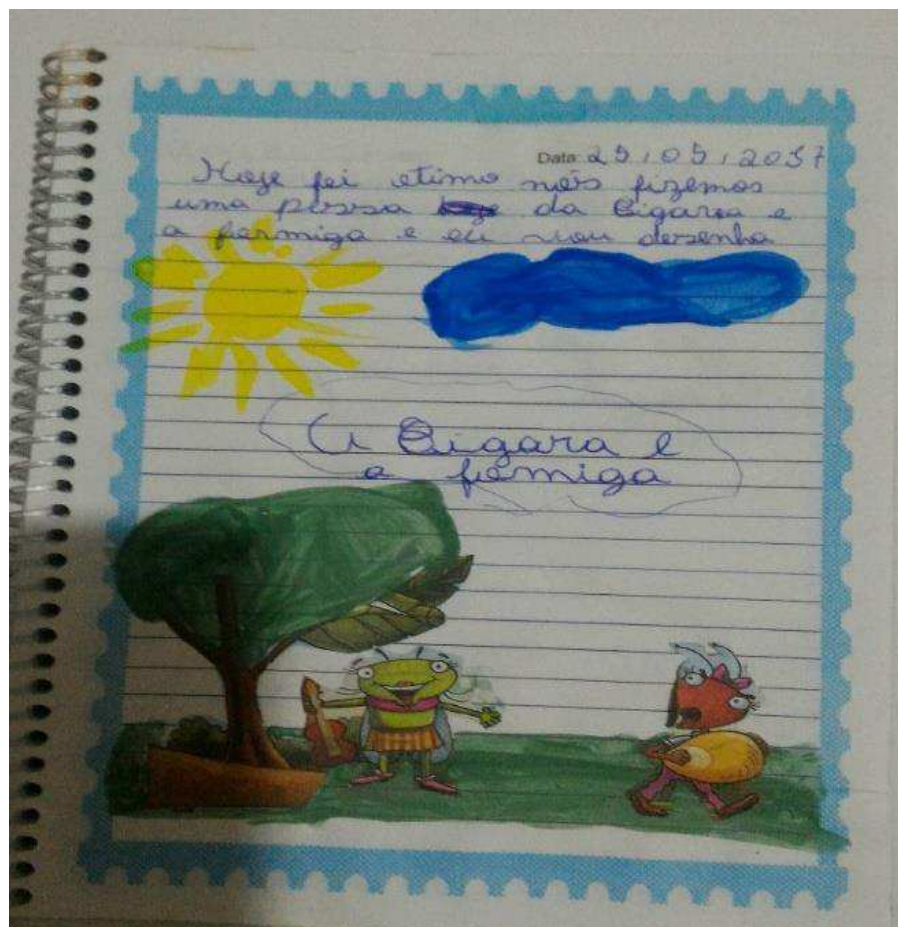 Data 25/05/2017
Hoje foi otimo nós fizemos
uma da Cigarra e
a formiga e eu vou desenha
A Cigara e
a fomiga